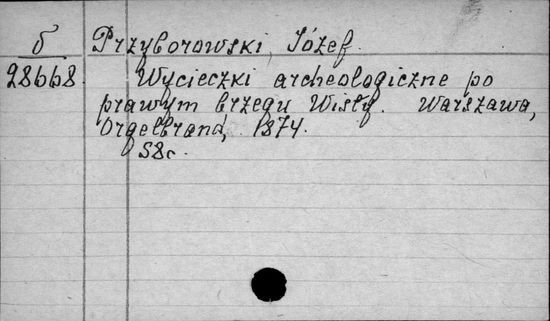 б Przyborowski, Józef.
28668. Wycieczki archeologiczne po
prawym brzegu Wisły. Warszawa,
Orgelbrand, 1874.
58c.